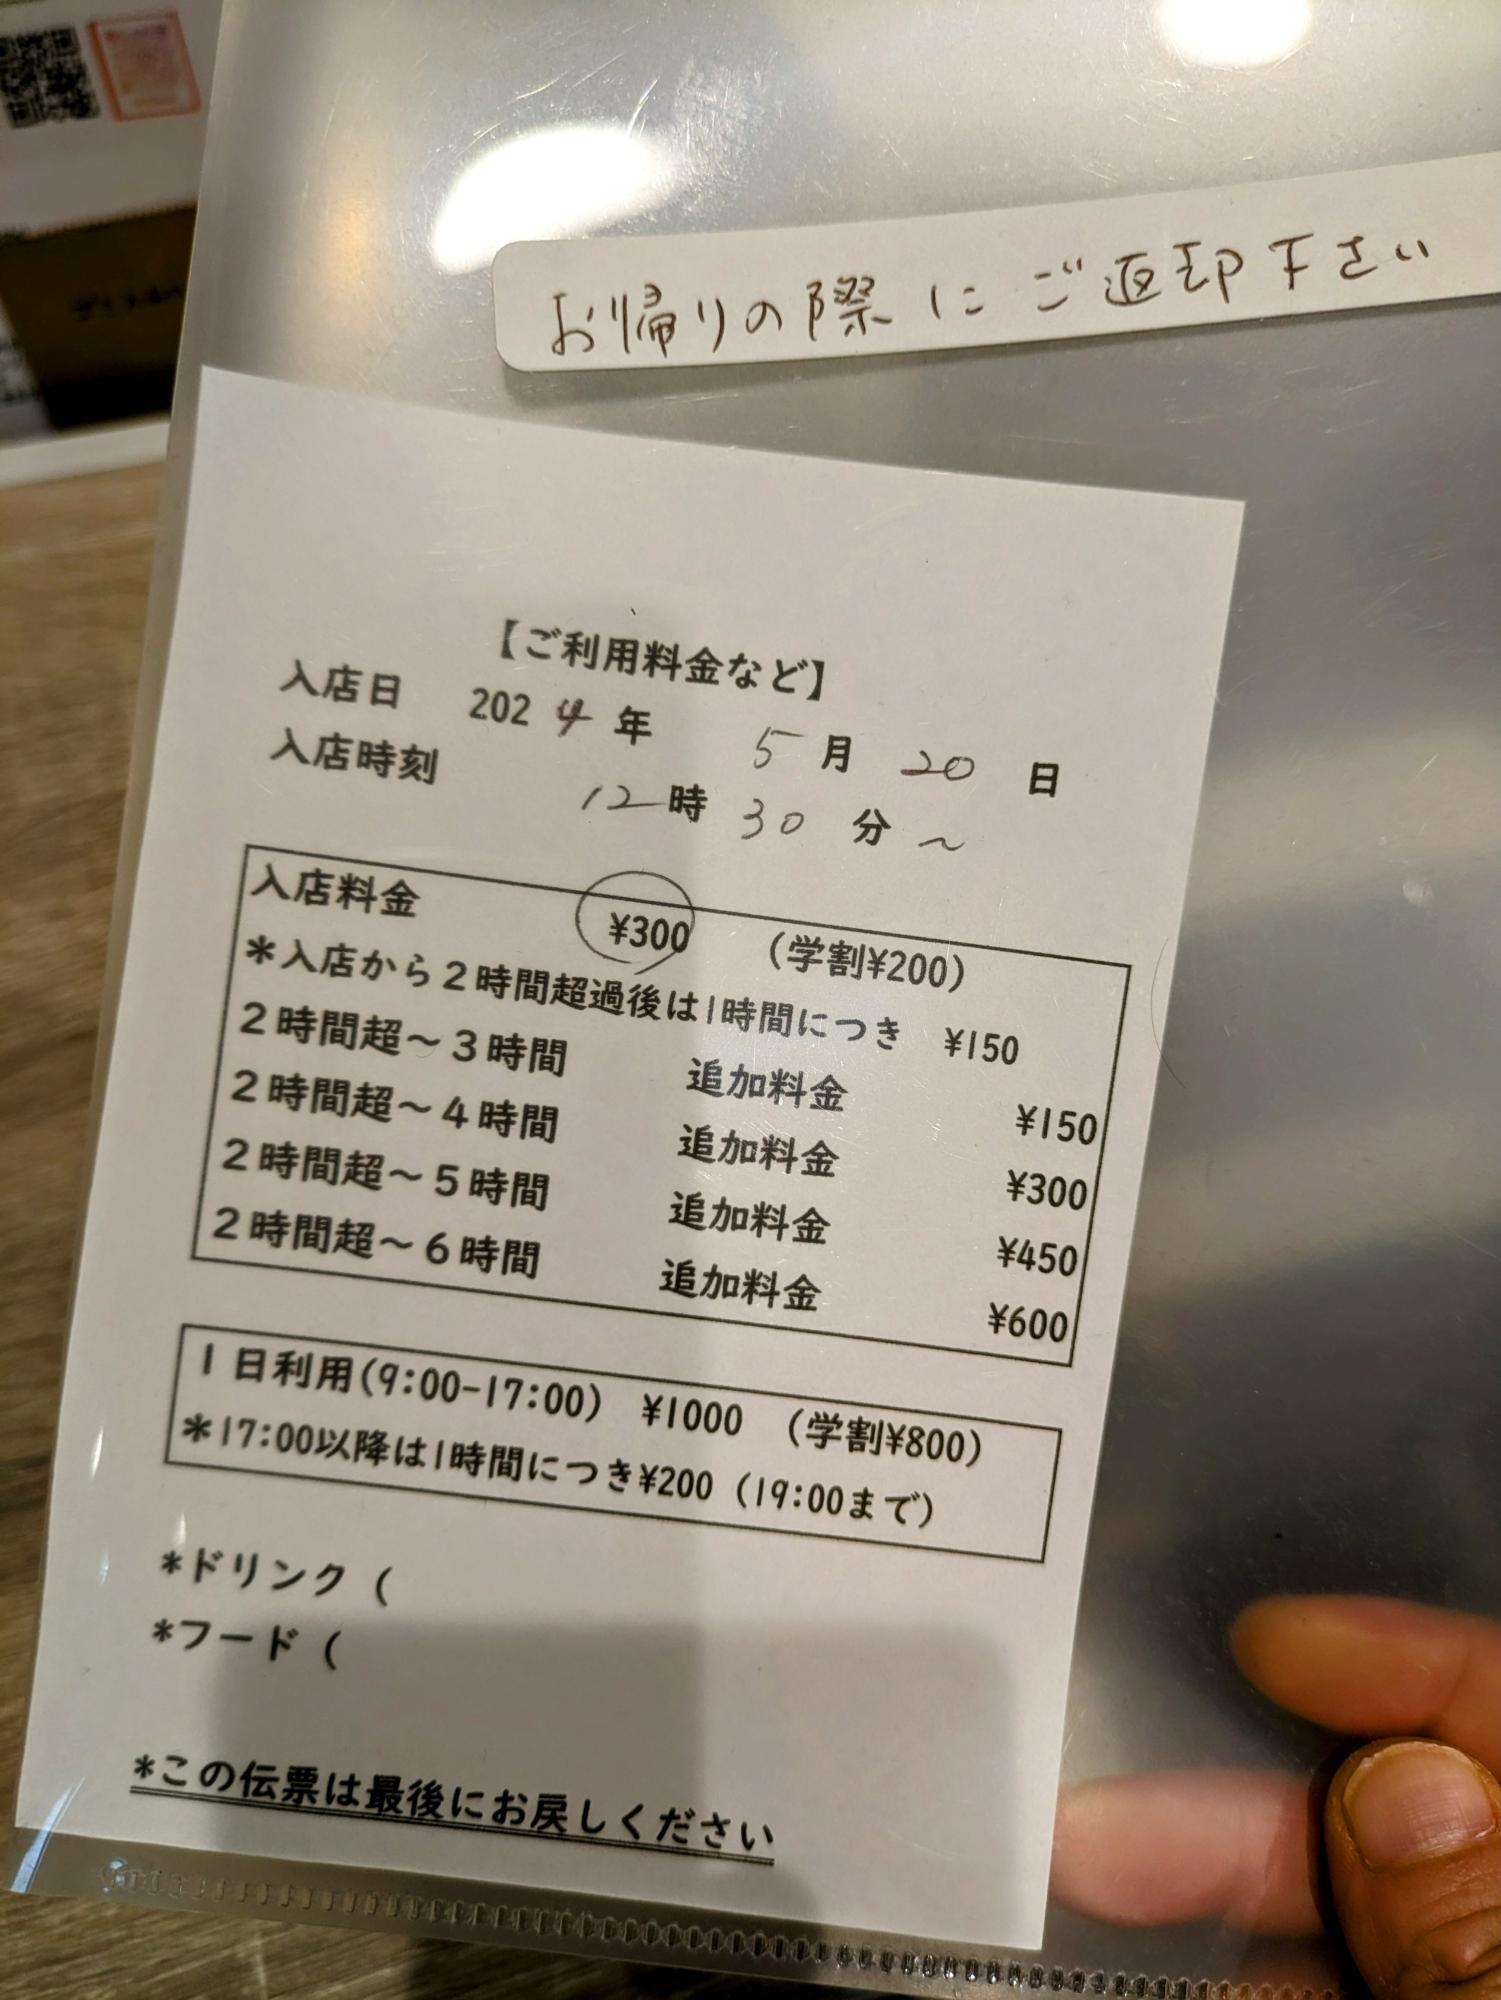 お帰りの際にご返却下さい
【ご利用料金など】
入店日 2024年 5月 20日
入店時刻 12時 30分~
入店料金 ¥300 (学割¥200)
*入店から2時間超過後は1時間につき ¥150
2時間超~3時間 追加料金 ¥150
2時間超~4時間 追加料金 ¥300
2時間超~5時間 追加料金 ¥450
2時間超~6時間 追加料金 ¥600
1日利用(9:00-17:00) ¥1000 (学割¥800)
*17:00以降は1時間につき¥200 (19:00まで)
*ドリンク (
*フード (
*この伝票は最後にお戻しください